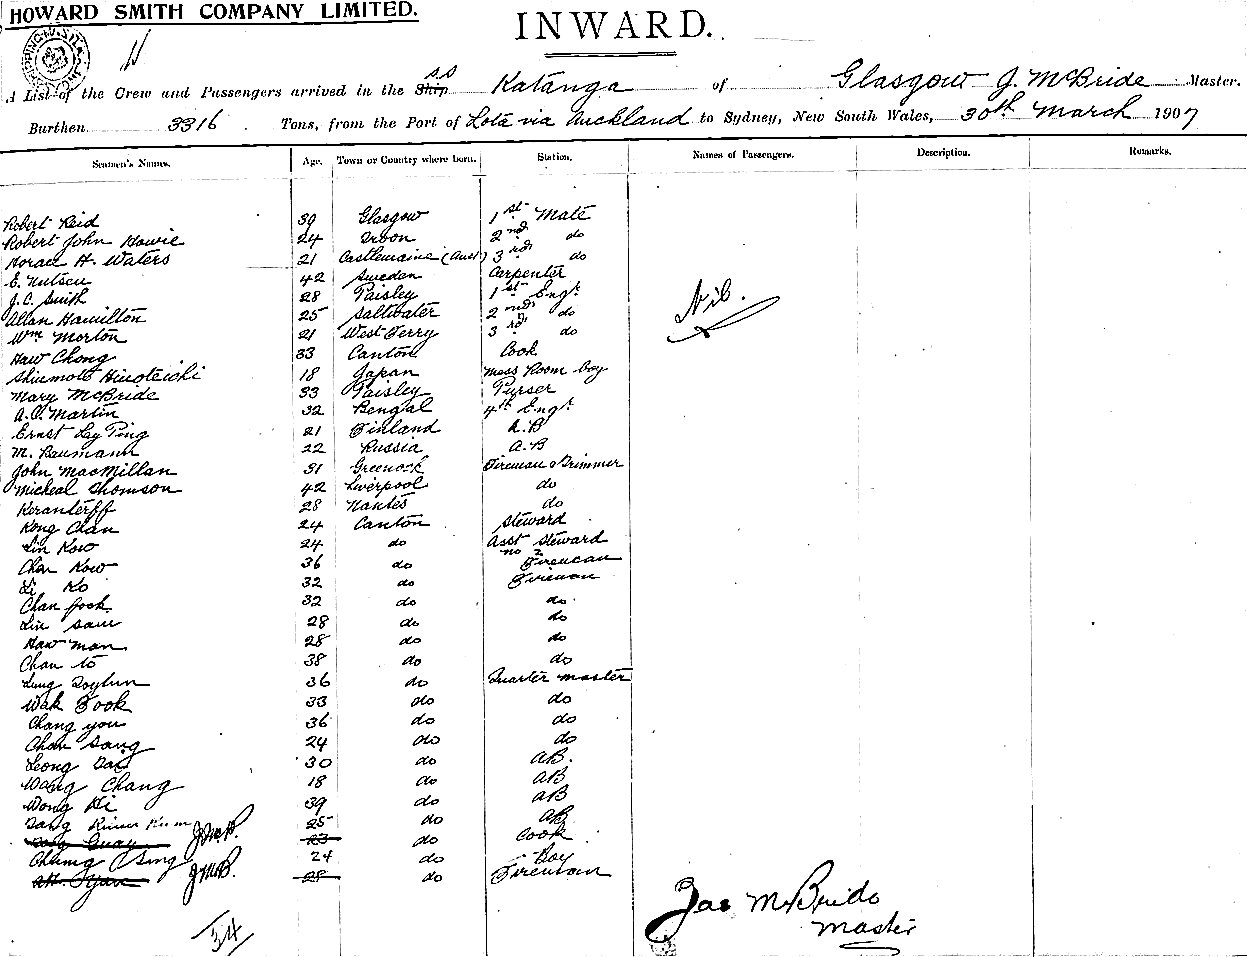 HOWARD SMITH COMPANY LIMITED.
INWARD.
S.S
A List of the Crew and Passengers arrived in the Ship Katanga of Glasgow J. McBride Master.
Burthen 3316 Tons, from the Port of Lota via Auckland to Sydney, New South Wales, 30th March 1907
Seamen's Names. Age. Town or Country where born. Station. Names of Passengers. Description. Remarks.
Robert Reid 39 Glasgow 1st Mate
Robert John Howie 24 Troon 2nd do
Horace H. Waters 21 Castlemaine (Aust) 3rd do
E. Nilsen 42 Sweden Carpenter
J. C. Smith 28 Paisley 1st Engr
Nil.
Allan Hamilton 25 Saltwater 2nd do
Wm Morton 21 West Ferry 3rd do
Haw Chong 33 Canton Cook
Shiemoto Hinoteichi 18 Japan Mess Room boy
Mary McBride 33 Paisley Purser
A. C. Martin 32 Bengal 4th Engr
Ernst Ley Ping 21 Finland A.B
M. Baumann 22 Russia A.B
John MacMillan 31 Greenock Fireman & Trimmer
Micheal Thomson 42 Liverpool do
28 Nantes do
Kong Chan 24 Canton Steward
Lin Kow 24 do Asst Steward
Chan Kow 36 do no 2 Fireman
Li Ko 32 do Fireman
Chan fook 32 do do
Lin Sam 28 do do
Haw man 28 do do
Chan to 38 do do
Lung 36 do Quarter master
Wak Fook 33 do do
Chang you 36 do do
Chan Sang 24 do do
Leong 30 do AB.
Wang Chang 18 do AB
Wong Ki 39 do AB
Tang 25 do AB
Guay J McB. 23 do Cook
Cheung Sing 24 do Boy
Ah Yan J McB. 28 do Fireman
Jas McBride
Master
34